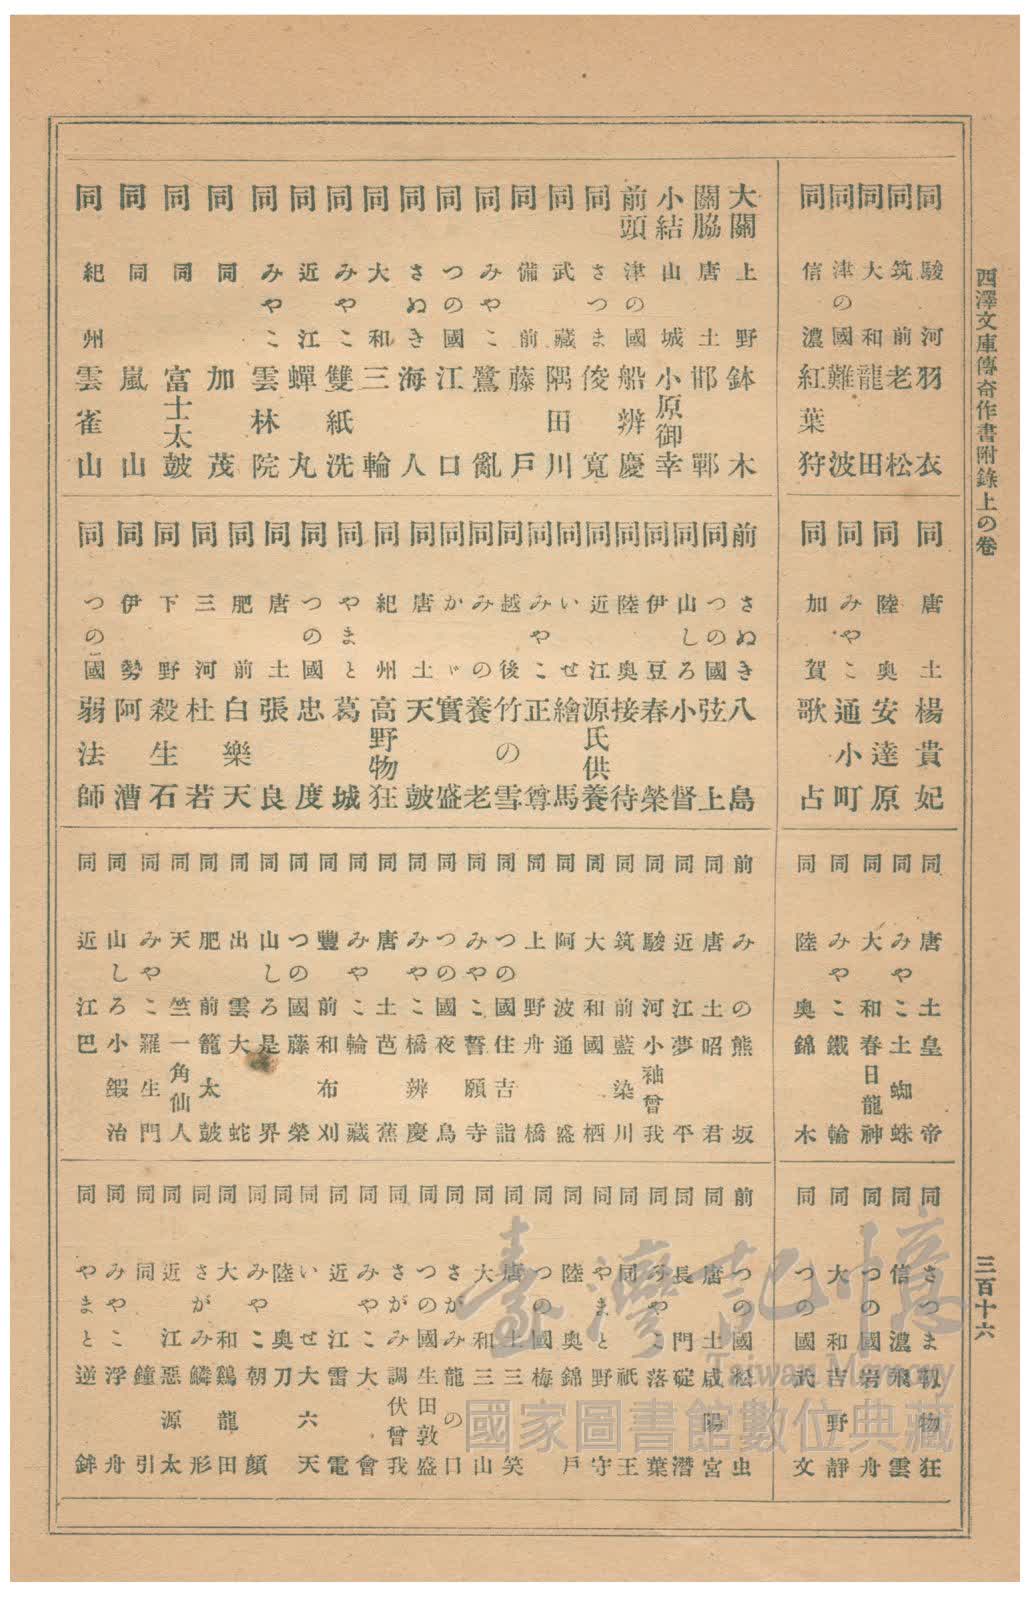 西澤文庫傳奇作書附錄上の卷
三百十六
同 駿河 羽衣
同 筑前 老松
同 大和 龍田
同 津の國 難波
同 信濃 紅葉狩
同 唐土 楊貴妃
同 陸奥 安達原
同 みやこ 通小町
同 加賀 歌占
同 唐土 皇帝
同 みやこ 土蜘蛛
同 大和 春日龍神
同 みやこ 鐵輪
同 陸奥 錦木
同 さつま 物狂
同 信濃 飛雲
同 つの國 岩舟
同 大和 吉野靜
同 つの國 武文
大關 上野 鉢木
關脇 唐土 邯鄲
小結 山城 小原御幸
前頭 津の國 船辨慶
同 さつま 俊寬
同 武藏 隅田川
同 備前 藤戶
同 みやこ 鷺亂
同 つの國 江口
同 さぬき 海人
同 大和 三輪
同 みやこ 雙紙洗
同 近江 蟬丸
同 みやこ 雲林院
同 同 加茂
同 同 富士太皷
同 同 嵐山
同 紀州 雲雀山
前 さぬき 八島
同 つの國 弦上
同 山しろ 小督
同 伊豆 春榮
同 陸奥 接待
同 近江 源氏供養
同 いせ 繪馬
同 みやこ 正尊
同 越後 竹の雪
同 みの 養老
同 かゞ 實盛
同 唐土 天皷
同 紀州 高野物狂
同 やまと 葛城
同 つの國 忠度
同 唐土 張良
同 肥前 白樂天
同 三河 杜若
同 下野 殺生石
同 伊勢 阿漕
同 つの國 弱法師
前 みの 熊坂
同 唐土 昭君
同 近江 夢平
同 駿河 小袖曾我
同 筑前 藍染川
同 大和 國栖
同 阿波 通盛
同 上野 舟橋
同 つの國 住吉詣
同 みやこ 誓願寺
同 つの國 夜鳥
同 みやこ 橋辨慶
同 唐土 芭蕉
同 みやこ 輪藏
同 豐前 和布刈
同 つの國 藤榮
同 山しろ 是界
同 出雲 大蛇
同 肥前 籠太皷
同 天竺 一角仙人
同 みやこ 羅生門
同 山しろ 小鍛冶
同 近江 巴
前 つの國 松虫
同 唐土 咸陽宮
同 長門 碇潛
同 みやこ 落葉
同 同 祇王
同 やまと 野守
同 陸奥 錦戶
同 つの國 梅
同 唐土 三笑
同 大和 三山
同 さがみ 龍の口
同 つの國 生田敦盛
同 さがみ 調伏曾我
同 みやこ 大會
同 近江 雷電
同 いせ 大六天
同 陸奥 刀
同 みやこ 朝顏
同 大和 鷄龍田
同 さがみ 鱗形
同 近江 惡源太
同 同 鐘引
同 みやこ 浮舟
同 やまと 逆鉾
臺灣記憶
Taiwan Memory
國家圖書館數位典藏